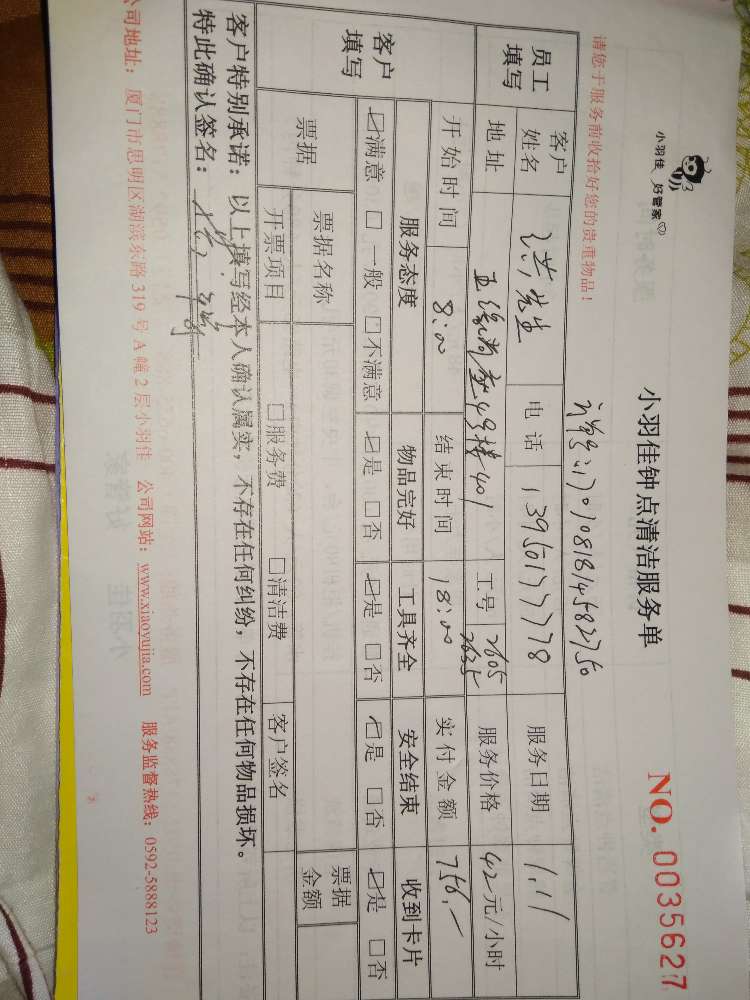 小羽佳 好管家
请您于服务前收拾好您的贵重物品！
小羽佳钟点清洁服务单
NO. 0035627
1701081814582750
员工填写 客户姓名 洪先生 电话 13950177778 服务日期 1.11
地址 4号楼401 工号 2605 2635 服务价格 42元/小时
开始时间 8:00 结束时间 18:00 实付金额 756.-
客户填写 服务态度 物品完好 工具齐全 安全结束 收到卡片
☑满意 □一般 □不满意 ☑是 □否 ☑是 □否 ☑是 □否 ☑是 □否
票据 票据名称 票据金额
开票项目 □服务费 □清洁费 客户签名
客户特别承诺：以上填写经本人确认属实，不存在任何纠纷，不存在任何物品损坏。
特此确认签名：
公司地址：厦门市思明区湖滨东路319号A幢2层小羽佳 公司网站：www.xiaoyujia.com 服务监督热线：0592-5888123